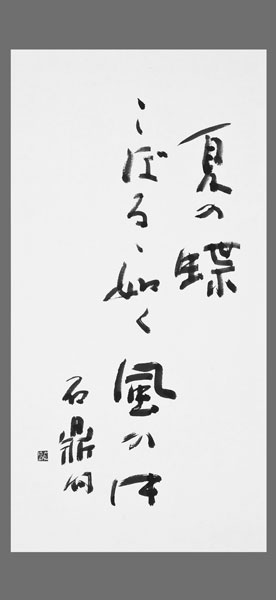 夏の蝶
こぼるゝ如く風の中
石鼎句